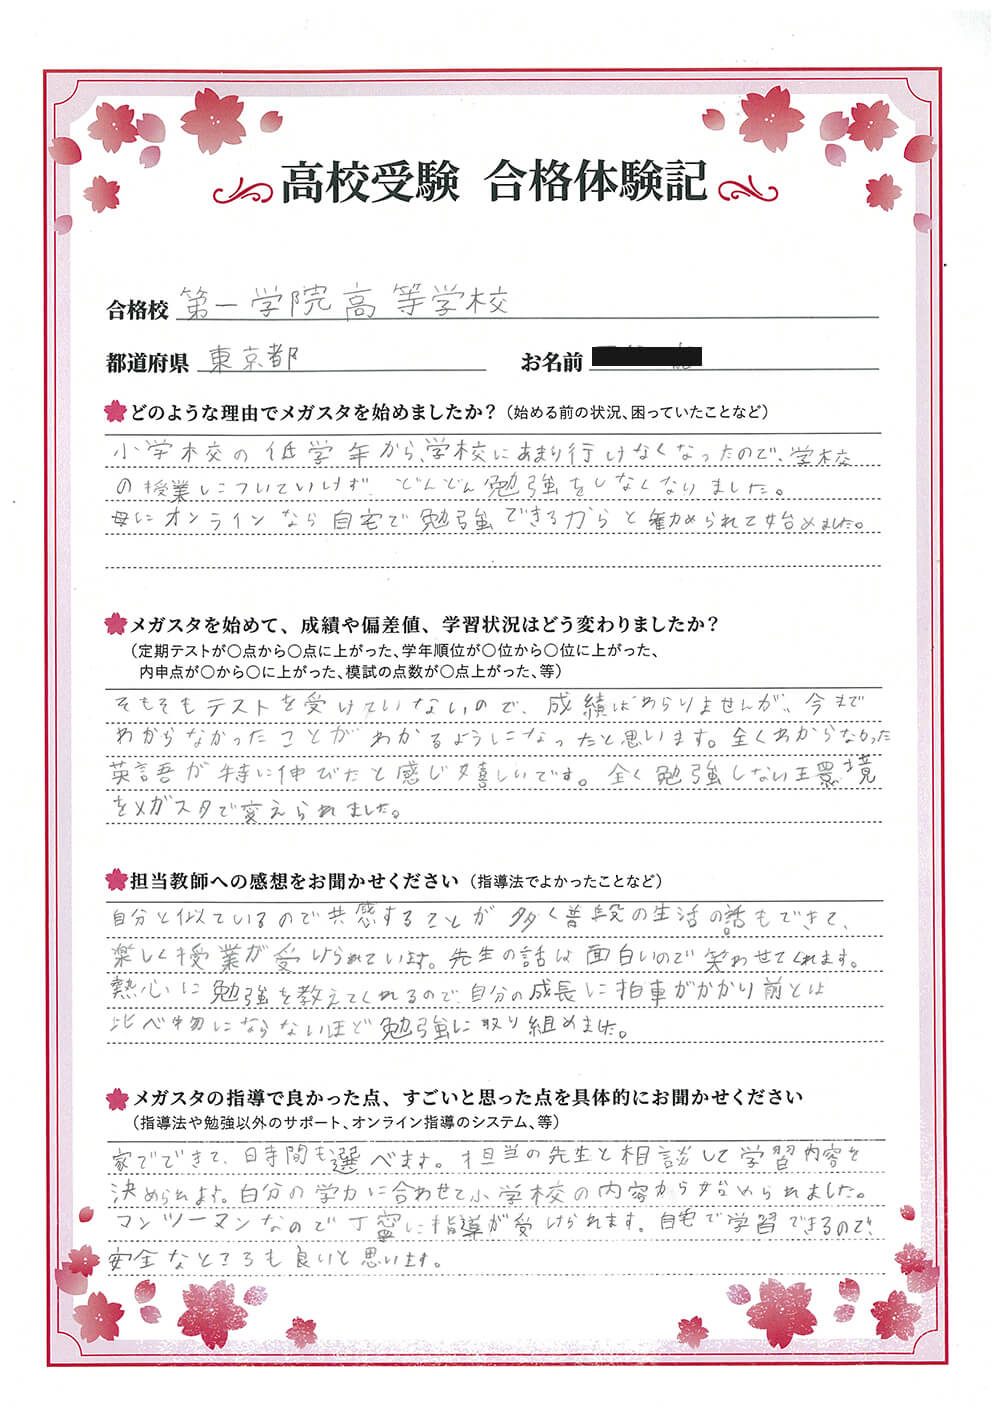 高校受験 合格体験記
合格校 第一学院高等学校
都道府県 東京都 お名前
どのような理由でメガスタを始めましたか？（始める前の状況、困っていたことなど）
小学校の低学年から、学校にあまり行けなくなったので、学校
の授業についていけず、どんどん勉強をしなくなりました。
母にオンラインなら自宅で勉強できるからと勧められて始めました。
メガスタを始めて、成績や偏差値、学習状況はどう変わりましたか？
（定期テストが〇点から〇点に上がった、学年順位が〇位から〇位に上がった、
内申点が〇から〇に上がった、模試の点数が〇点上がった、等）
そもそもテストを受けていないので、成績はわかりませんが、今まで
わからなかったことがわかるようになったと思います。全くわからなかった
英語が特に伸びたと感じ嬉しいです。全く勉強しない環境
をメガスタで変えられました。
担当教師への感想をお聞かせください（指導法でよかったことなど）
自分と似ているので共感することが多く普段の生活の話もできて、
楽しく授業が受けられています。先生の話は面白いので笑わせてくれます。
熱心に勉強を教えてくれるので、自分の成長に拍車がかかり前とは
比べ物にならないほど勉強に取り組めました。
メガスタの指導で良かった点、すごいと思った点を具体的にお聞かせください
（指導法や勉強以外のサポート、オンライン指導のシステム、等）
家でできて、日時間も選べます。担当の先生と相談して学習内容を
決められます。自分の学力に合わせて小学校の内容から始められました。
マンツーマンなので丁寧に指導が受けられます。自宅で学習できるので、
安全なところも良いと思います。